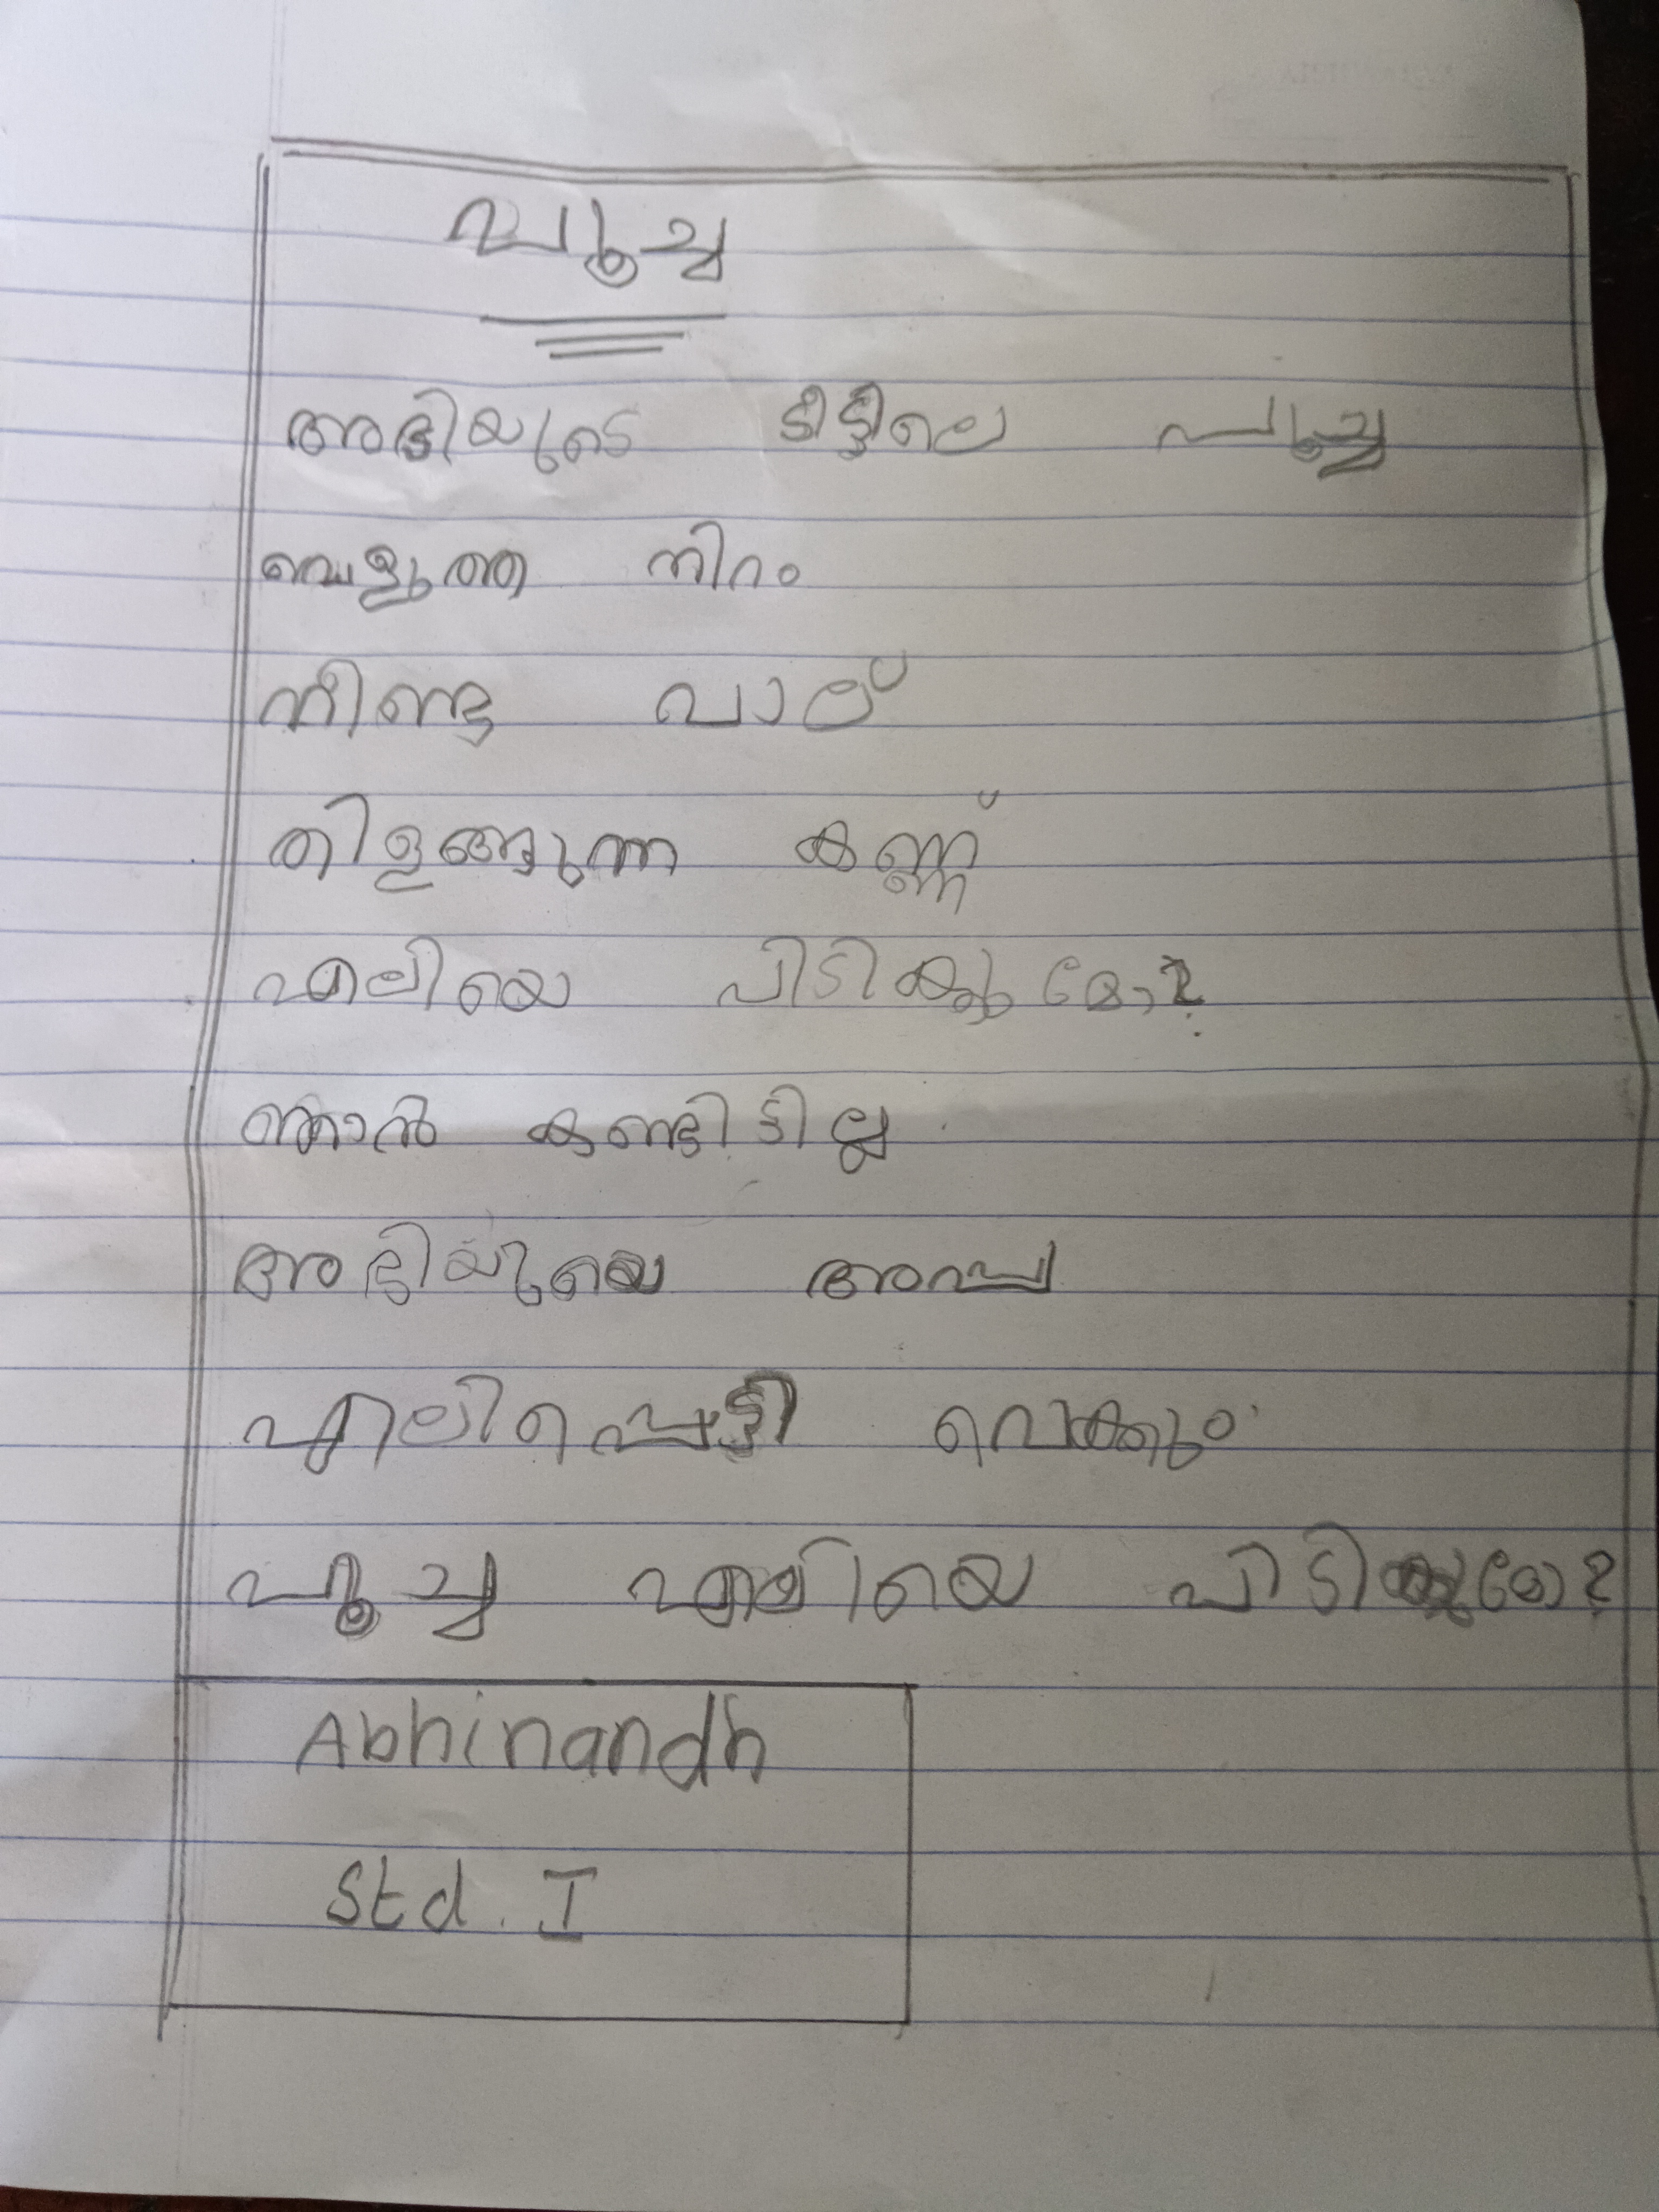 പൂച്ച
അഭിയുടെ വീട്ടിലെ പൂച്ച
വെളുത്ത നിറം
നീണ്ട വാല്
തിളങ്ങുന്ന കണ്ണ്
എലിയെ പിടിക്കുമോ?
ഞാൻ കണ്ടിട്ടില്ല
അഭിയുടെ അമ്മ
എലിപ്പെട്ടി വെക്കും
പൂച്ച എലിയെ പിടിക്കുമോ?
Abhinandh
Std. I